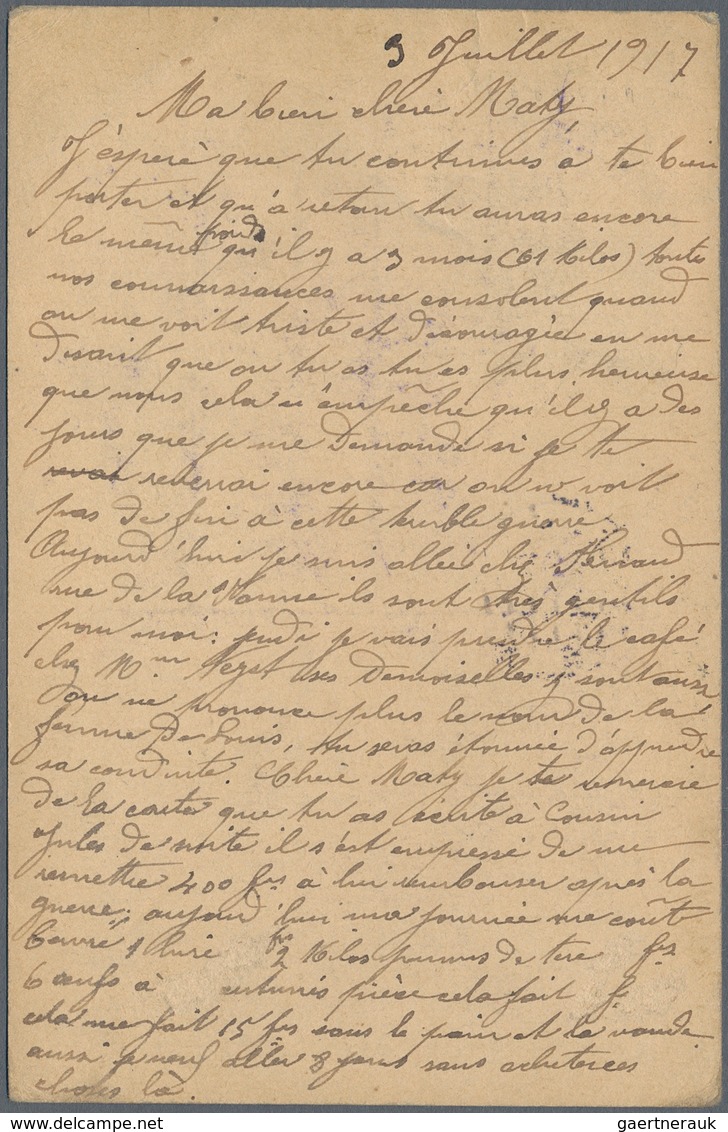 3 Juillet 1917
Ma bien cheré Maty,
J'éspère que tu continues a te bien
porter et qu'a retour tu auras encore
le même poids qu'il y a 3 mois (61 kilos) toutes
nos connaissances me consolent quand
on me voit triste et découragée en me
disant que ou tu es tu es plus heureuse
que nous cela n'empêche qu'il y a des
jours que je me demande si je te
revai reverrai encore car on n voit
pas de fin à cette terrible guerre
Aujourd'hui je suis allée chez
rue de la ils sont très gentils
pour moi: jeudi je vais prendre le café
chez Mme ses demoiselles y sont aussi
on ne prononce plus le nom de la
femme de Louis, tu seras étonnée d'apprendre
sa conduite. Cheré Maty je te remercie
de la carte que tu as écrite à Cousin
Jules de suite il s'est empressé de me
remettre 400 frs à lui rembourser après la
guerre; aujourd'hui ma journée me coûte
beurre 1 livre frs 2 kilos pommes de tere frs
6 oeufs à centimes pièce cela fait fr
cela me fait 15 frs sans le pain et la viande
aussi je veux aller 8 jours sans acheter ces
choses là.
gaertnerauk @ delcampe.net